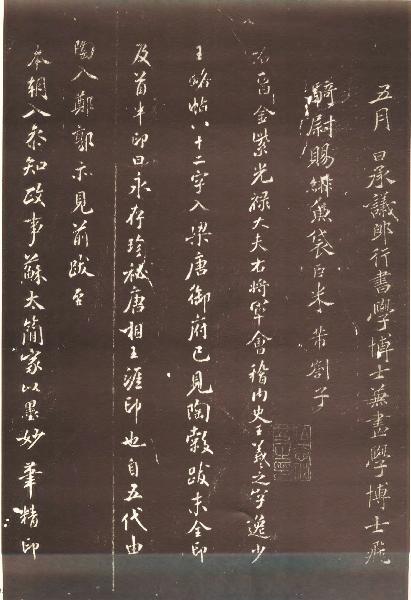 五月日承議郎行書學博士兼畫學博士飛
騎尉賜緋魚袋臣米芾劄子
右晉金紫光祿大夫右將軍會稽內史王羲之字逸少
王略帖八十二字入梁唐御府已見陶穀跋末全印
及首半印曰永存珍祕唐相王涯印也自五代由
陶入鄭郭示見前跋至
本朝入參知政事蘇太簡家以墨妙筆精印